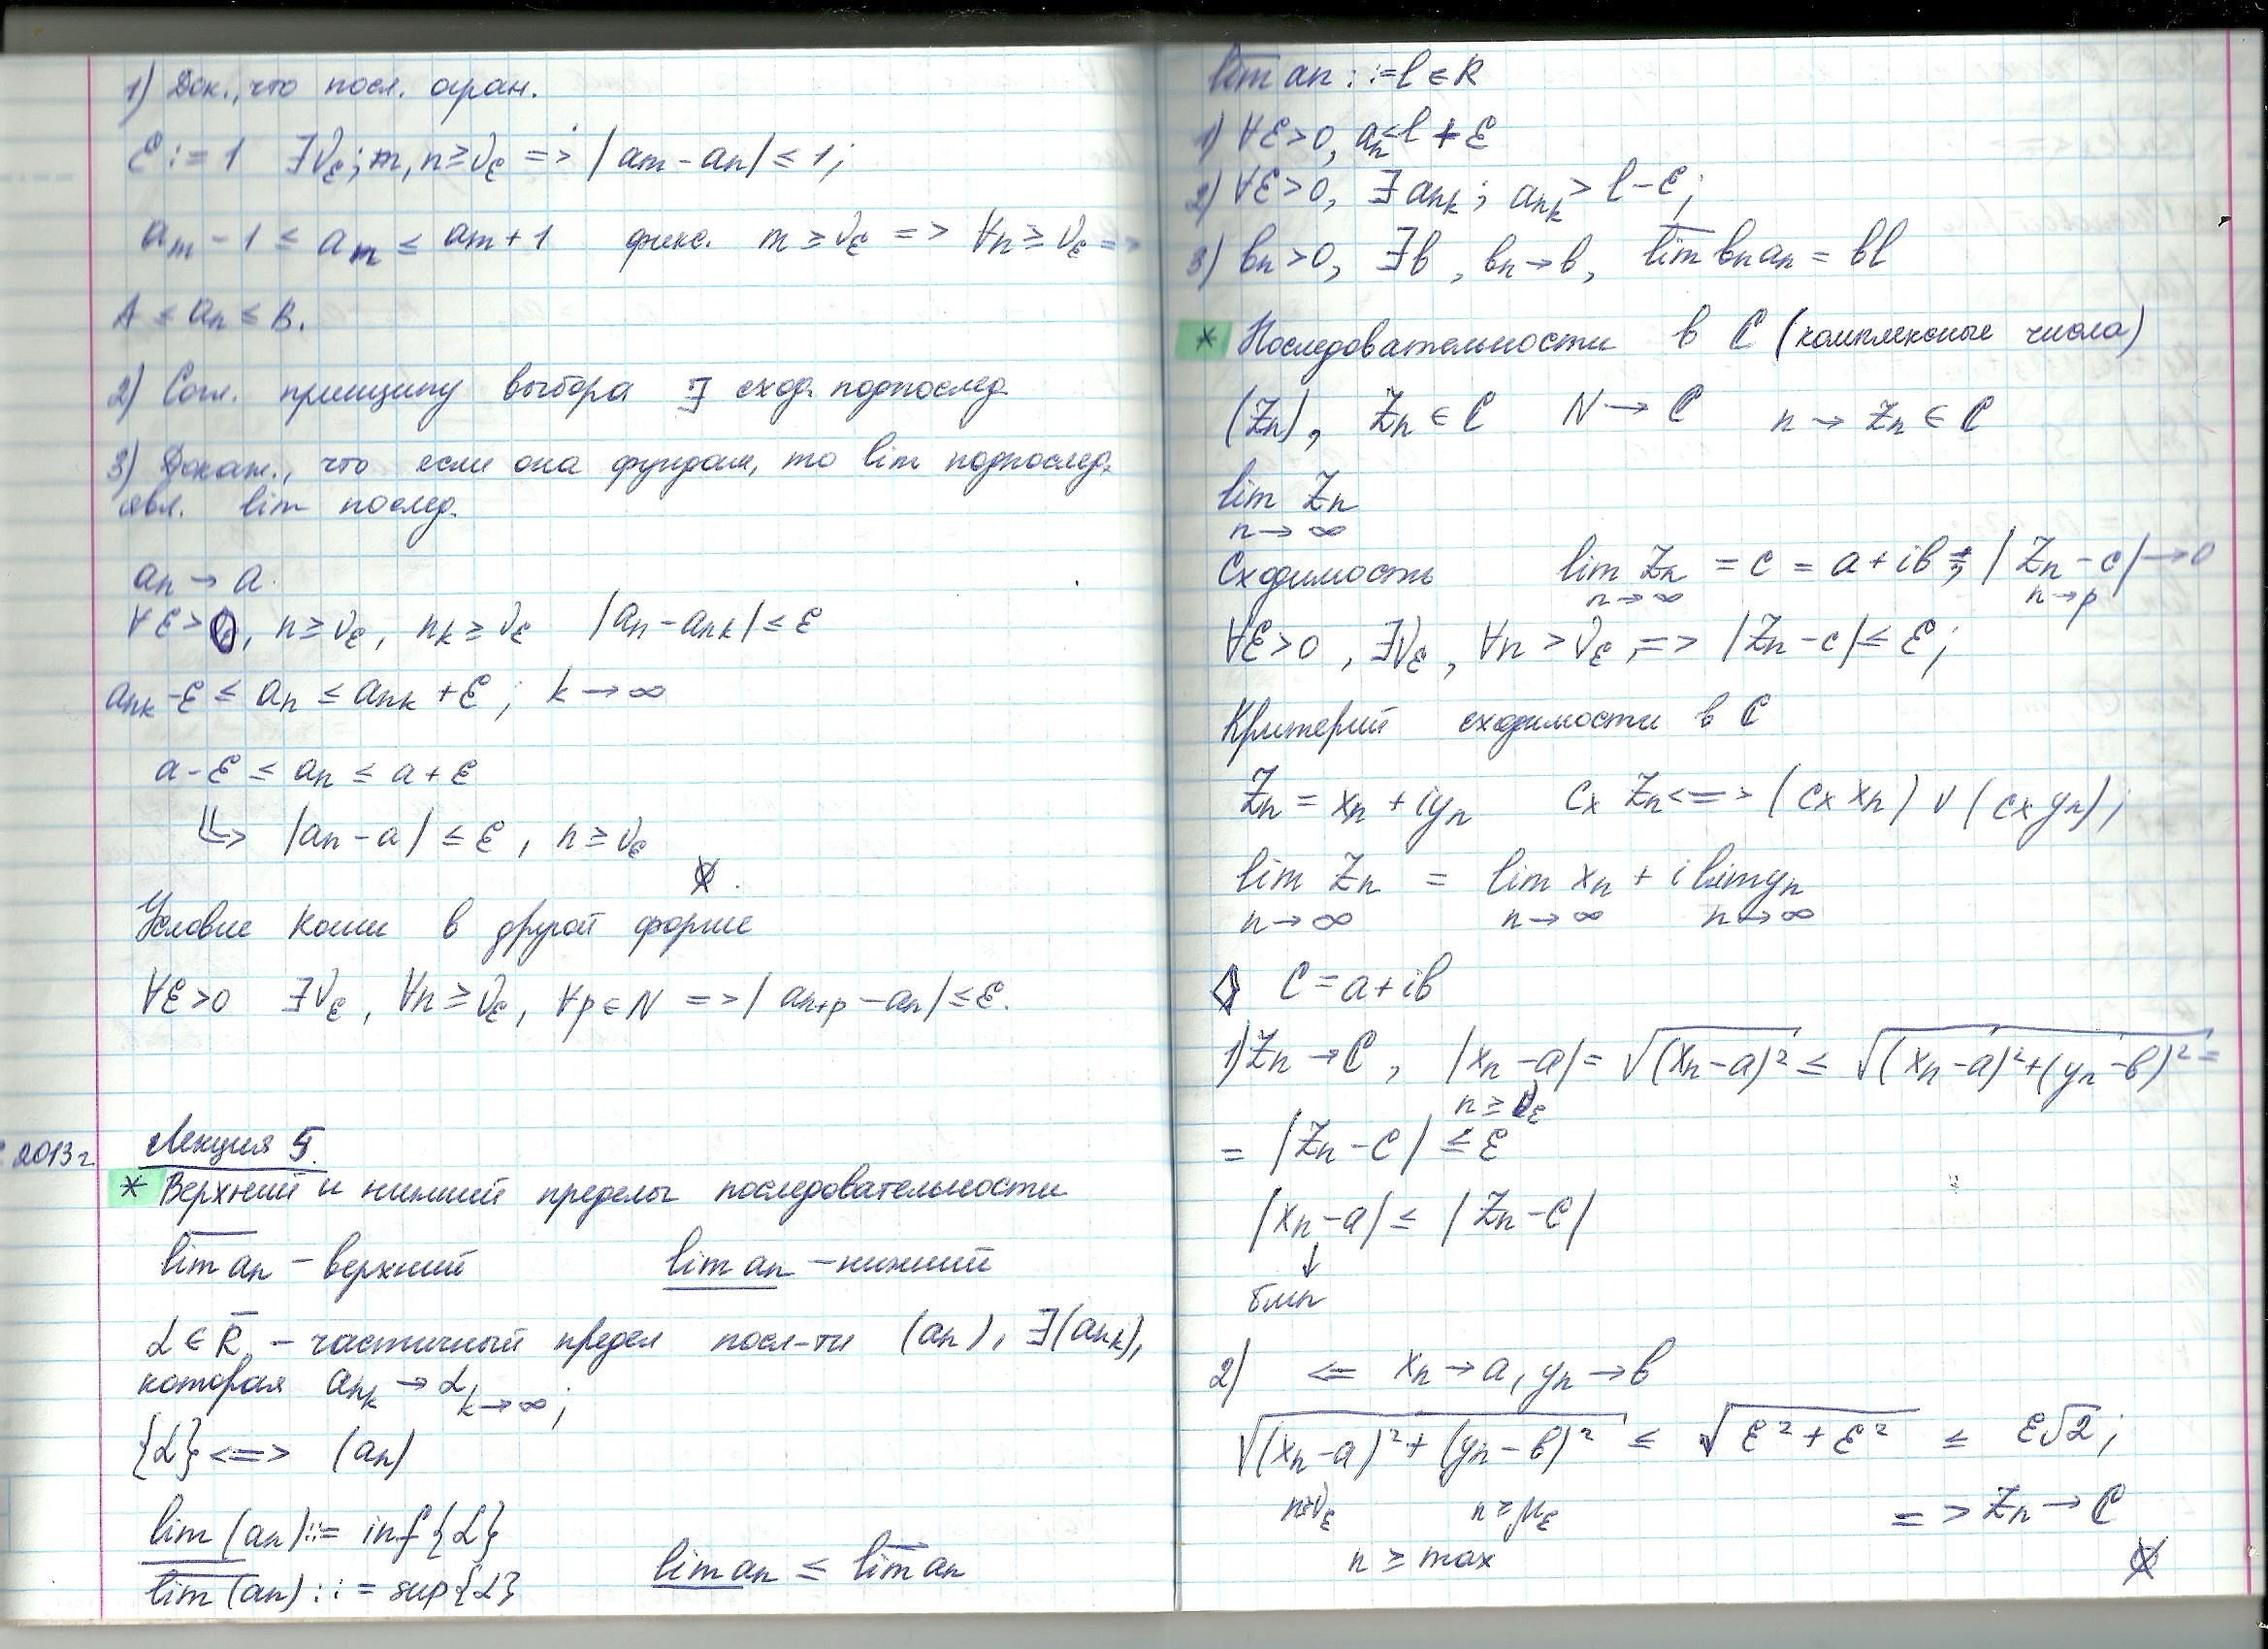 1) Док., что посл. огран.
ε := 1 ∃ν_ε; m, n ≥ ν_ε => |a_m - a_n| ≤ 1;
a_m - 1 ≤ a_m ≤ a_m + 1 фикс. m ≥ ν_ε => ∀n ≥ ν_ε =>
A ≤ a_n ≤ B.
2) Согл. принципу выбора ∃ сход. подпослед.
3) Докаж., что если она фундам, то lim подпослед.
явл. lim послед.
a_n → a.
∀ε > 0, n ≥ ν_ε, n_k ≥ ν_ε |a_n - a_nk| ≤ ε
a_nk - ε ≤ a_n ≤ a_nk + ε; k → ∞
a - ε ≤ a_n ≤ a + ε
⇓> |a_n - a| ≤ ε, n ≥ ν_ε
Условие Коши в другой форме
∀ε > 0 ∃ν_ε, ∀n ≥ ν_ε, ∀p ∈ N => |a_n+p - a_n| ≤ ε.
2013г. Лекция 5.
* Верхний и нижний пределы последовательности
l̅i̅m̅ a_n - верхний l̲i̲m̲ a_n - нижний
α ∈ R̅, - частичный предел посл-ти (a_n), ∃(a_nk),
которая a_nk → α k→∞;
{α} <=> (a_n)
l̲i̲m̲ (a_n) ::= inf{α}
l̅i̅m̅ (a_n) ::= sup{α} l̲i̲m̲ a_n ≤ l̅i̅m̅ a_n
l̅i̅m̅ a_n ::= l ∈ R
1) ∀ε > 0, a_n < l + ε
2) ∀ε > 0, ∃a_nk; a_nk > l - ε;
3) b_n > 0, ∃b, b_n → b, l̅i̅m̅ b_n a_n = bl
* Последовательности в ℂ (комплексные числа)
(Z_n), Z_n ∈ ℂ N → ℂ n → Z_n ∈ ℂ
lim Z_n
n → ∞
Сходимость lim Z_n = c = a + ib; |Z_n - c| → 0
n → ∞ n → p
∀ε > 0, ∃ν_ε, ∀n > ν_ε, => |Z_n - c| ≤ ε;
Критерий сходимости в ℂ
Z_n = x_n + iy_n Сх Z_n <=> (Сх x_n) ∨ (Сх y_n);
lim Z_n = lim x_n + i lim y_n
n → ∞ n → ∞ n → ∞
C = a + ib
1) Z_n → C, |x_n - a| = √(x_n - a)² ≤ √(x_n - a)² + (y_n - b)² =
n ≥ ν_ε
= |Z_n - C| ≤ ε
|x_n - a| ≤ |Z_n - C|
↓
бмп
2) <= x_n → a, y_n → b
√(x_n - a)² + (y_n - b)² ≤ √ε² + ε² ≤ ε√2;
n≥ν_ε n ≥ μ_ε => Z_n → C
n ≥ max